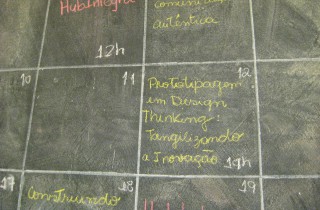 comunicação
autêntica
12h
10
11
12
Prototipagem
em Design
Thinking:
Tangilizando
a Inovação 19h
17
18
19
Construindo